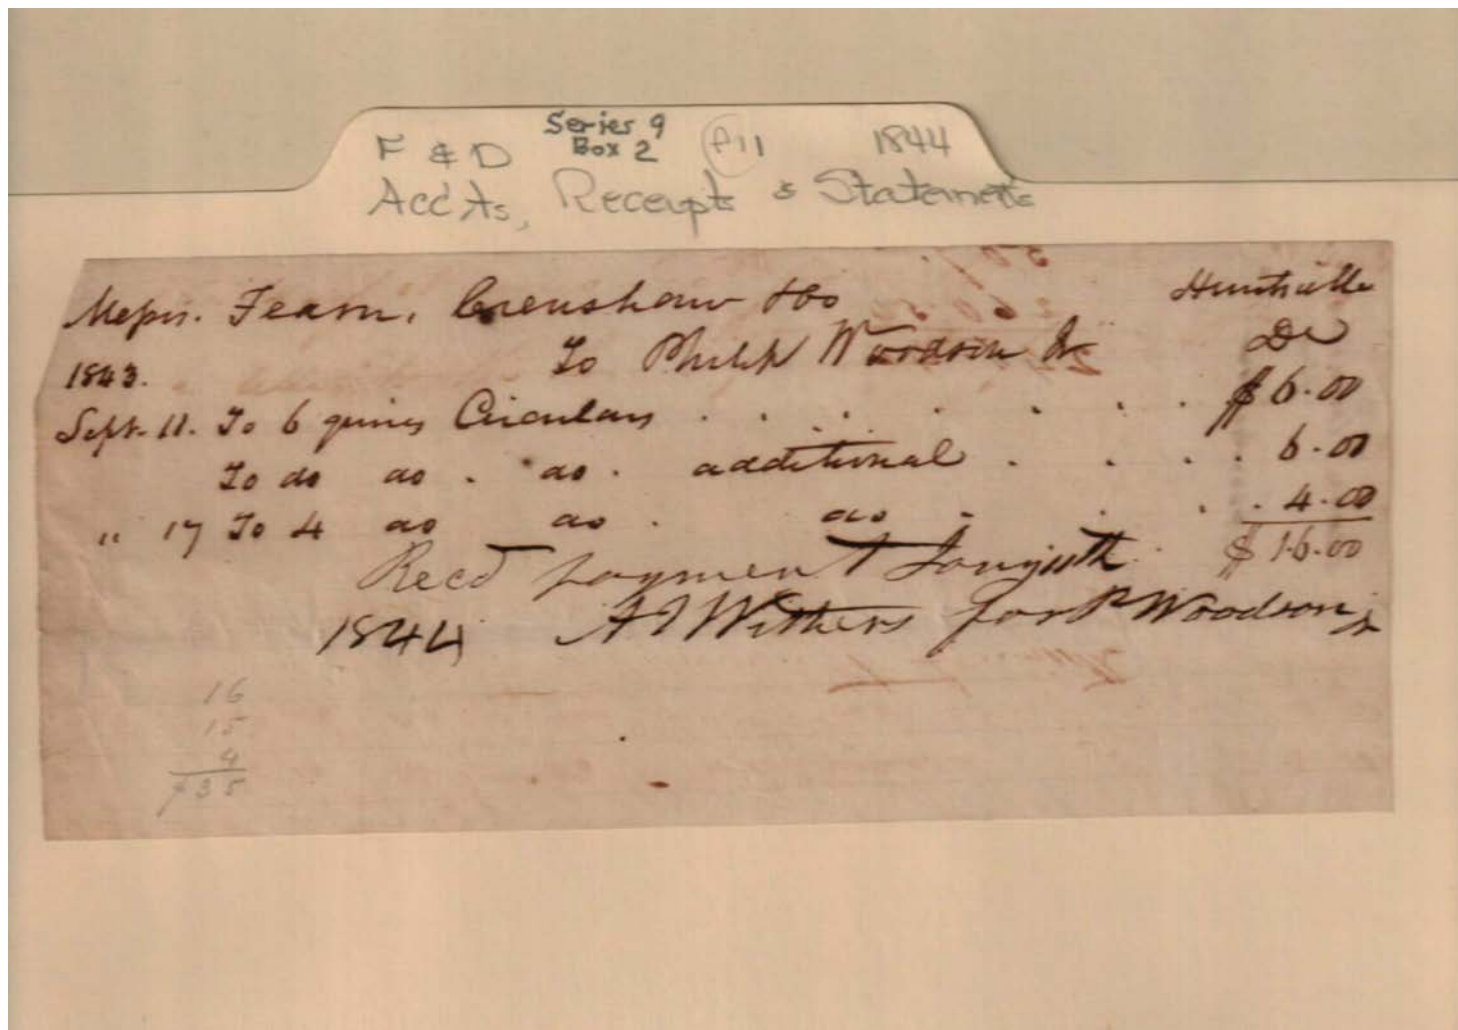 Series 9
F & D Box 2 1844
Accts, Receipts & Statements
Messrs. Fearn, Crenshaw & Co Huntsville
1843. To Philip Woodson Jr Dr
Sept. 11. To 6 quires Circulars . . . . . . . $6.00
To do do . do . additional . . . . 6.00
" 17 To 4 do do . do . . . . 4.00
$16.00
Recd payment
1844 Withers for P Woodson Jr
16
15
4
$35